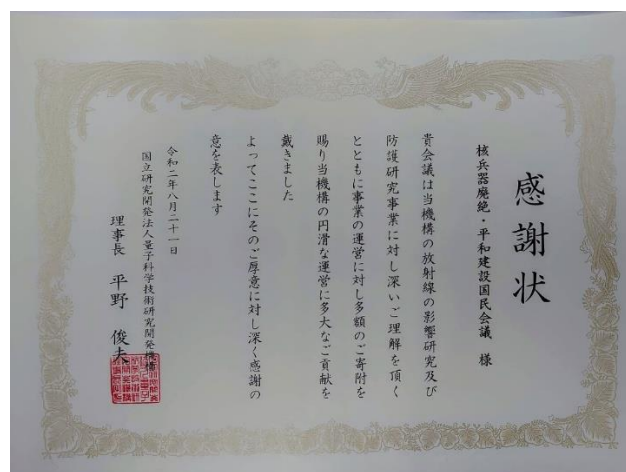 感謝状
核兵器廃絶・平和建設国民会議 様
貴会議は当機構の放射線の影響研究及び
防護研究事業に対し深いご理解を頂く
とともに事業の運営に対し多額のご寄附を
賜り当機構の円滑な運営に多大なご貢献を
戴きました
よってここにそのご厚意に対し深く感謝の
意を表します
令和二年八月二十一日
国立研究開発法人量子科学技術研究開発機構
理事長 平野 俊夫